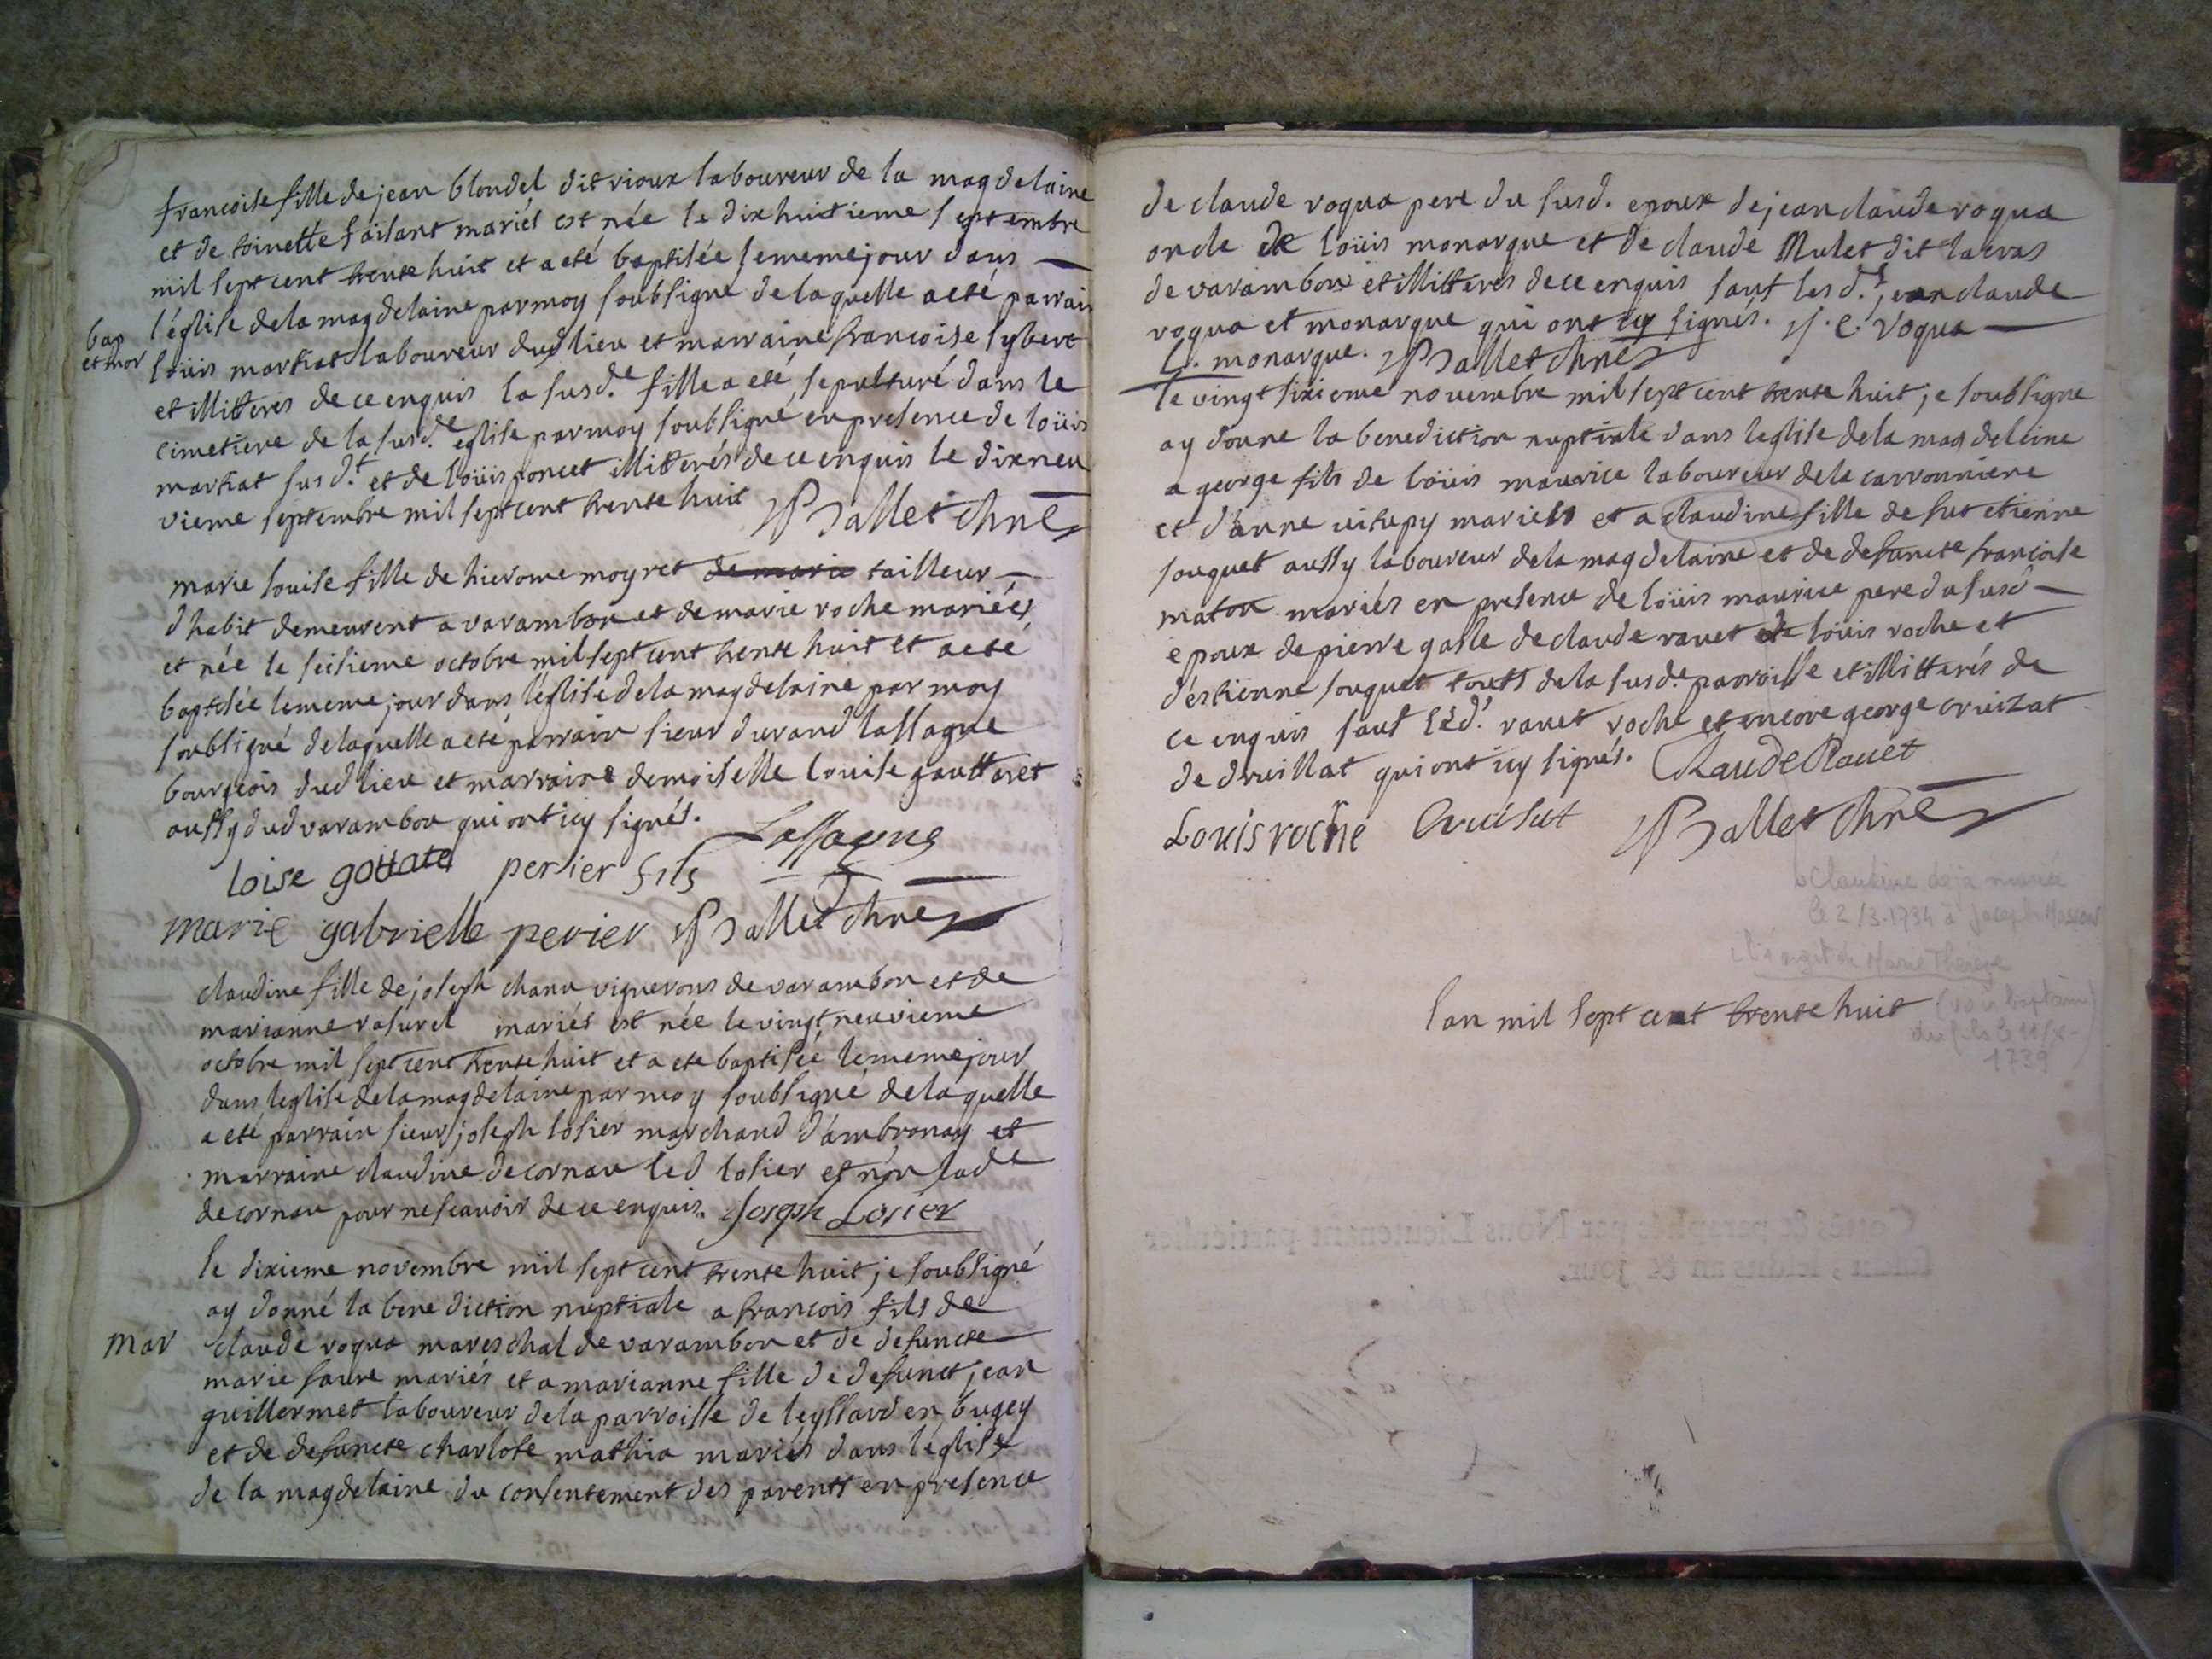 francoise fille de jean blondel dit rioux laboureur de la magdelaine
et de toinette faisant mariés est née le dixhuitieme septembre
mil sept cent trente huit et a eté baptisée le meme jour dans
l'église de la magdelaine par moy soubsigne de laquelle a eté parrain
bap
et mor
loüis martiat laboureur dud lieu et marraine francoise sybert
et illitteres de ce enquis la susd.e fille a eté sepulturé dans le
cimetiere de la susd.e eglise par moy soubsigné en presence de loüis
martiat susd.t et de loüis poncet illitterés de ce enquis le dixneu
vieme septembre mil sept cent trente huit Ballet chne
marie louise fille de hierome moyret de marie tailleur
d'habit demeurent a varambon et de marie roche mariées
et née le seisieme octobre mil sept cent trente huit et a eté
baptisée le meme jour dans l'église de la magdelaine par moy
soubsigné de laquelle a eté parrain sieur durand lassagne
bourgeois dud lieu et marraine demoiselle louise gouttaret
aussy dud varambon qui ont icy signés. Lassagne
loise perier fils
marie gabrielle perier Ballet chne
claudine fille de joseph chanu vignerons de varambon et de
marianne rasurel mariés est née le vingt neuvieme
octobre mil sept cent trente huit et a ete baptisée le meme jour
dans leglise de la magdelaine par moy soubsigné de laquelle
a eté parrain sieur joseph losier marchand d'ambronay et
marraine claudine decornau led losier et non lad.e
decornau pour ne scavoir de ce enquis. Joseph Losier
le dixieme novembre mil sept cent trente huit je soubsigné
ay donné la benediction nuptiale a francois fils de
mar
claude roqua mareschal de varambon et de defuncte
marie favre mariés et a marianne fille de defunct jean
guillermet laboureur de la parroisse de leyssard en bugey
et de defuncte charlote mathia mariés dans léglise
de la magdelaine du consentement des parents en presence
de claude roqua pere du susd. epoux de jean claude roqua
oncle de loüis monarque et de claude Mulet dit lacras
de varambon et illitteres de ce enquis sauf lesd.t jean claude
roqua et monarque qui ont icy signés. J. C. Roqua
L. monarque. Ballet chne
le vingt sixieme novembre mil sept cent trente huit je soubsigne
ay donne la benediction nuptiale dans leglise de la magdeleine
a george fils de loüis maurice laboureur de la carronniere
et d'anne mariés et a claudine fille de fut etienne
fouquet aussy laboureur de la magdelaine et de defuncte francoise
maton mariés en presence de loüis maurice pere du susd
epoux de pierre gasle de claude ravet de loüis roche et
d'estienne fouquet touts de la susd.e parroisse et illitterés de
ce enquis sauf led.t ravet roche et encore george cruizat
de druillat qui ont icy signés. Claude Rauet
Louis roche Cruisat Ballet chne
Claudine déjà mariée
le 2/3-1734 à Joseph
Il s'agit de Marie Thérèse
(voir baptême
l'an mil sept cent trente huit
du fils 11/
1739